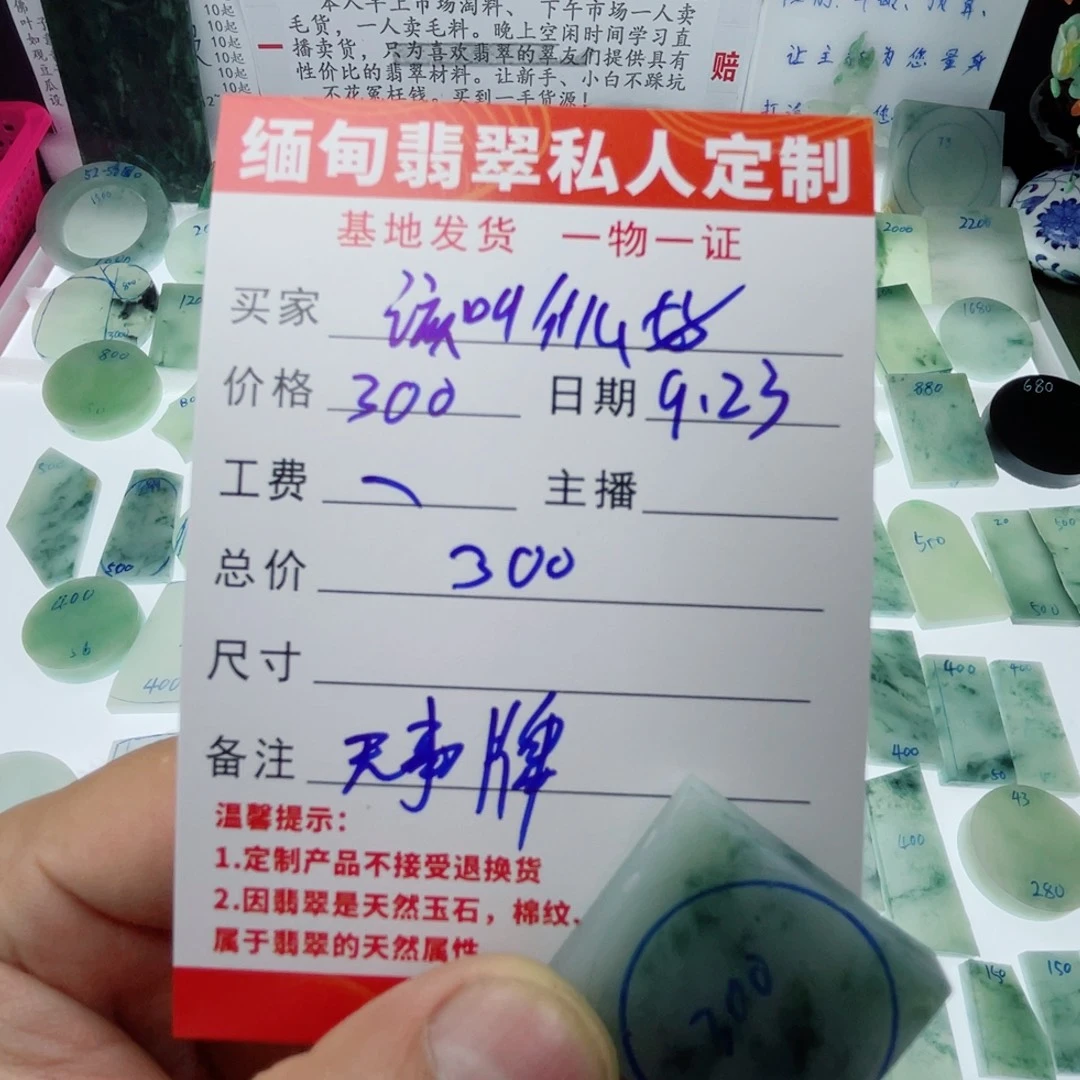 10起
10起
10起
10起
10起
本人早上市场淘料、下午市场一人卖
毛货，一人卖毛料。晚上空闲时间学习直
播卖货，只为喜欢翡翠的翠友们提供具有
性价比的翡翠材料。让新手、小白不踩坑
不花冤枉钱。买到一手货源！
一
赔
让主
为您量身
缅甸翡翠私人定制
基地发货 一物一证
买家 该叫什么好
价格 300 日期 9.23
工费 主播
总价 300
尺寸
备注 无事牌
温馨提示：
1.定制产品不接受退换货
2.因翡翠是天然玉石，棉纹、
属于翡翠的天然属性
300
800
500
500
400
2000
2200
1680
880
680
500
20
500
500
400
400
400
50
400
43
280
150
150